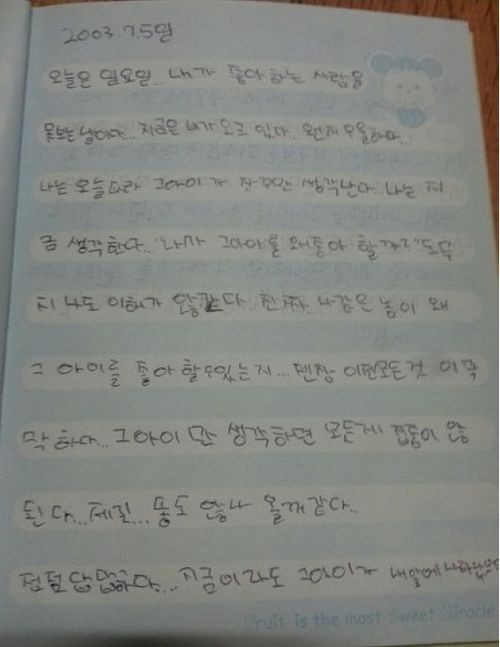 2003 7.5일
오늘은 일요일... 내가 좋아 하는 사람을
못보는 날이다... 지금은 비가 오고 있다... 왠지 우울하다...
나는 오늘따라 그아이가 자꾸만 생각난다 나는 지
금 생각한다.. "내가 그아이를 왜좋아 할까?" 도무
지 나도 이해가 않간다 진짜.. 나같은 놈이 왜
그 아이를 좋아 할수있는지... 젠장 이젠모든것 이 막
막 하다... 그아이 만 생각하면 모든게 집중이 않
된 다... 제길... 똥도 않나 올꺼같다..
점점 답답하다... 지금이라도 그아이가 내앞에
Fruit is the most Sweet Miracle